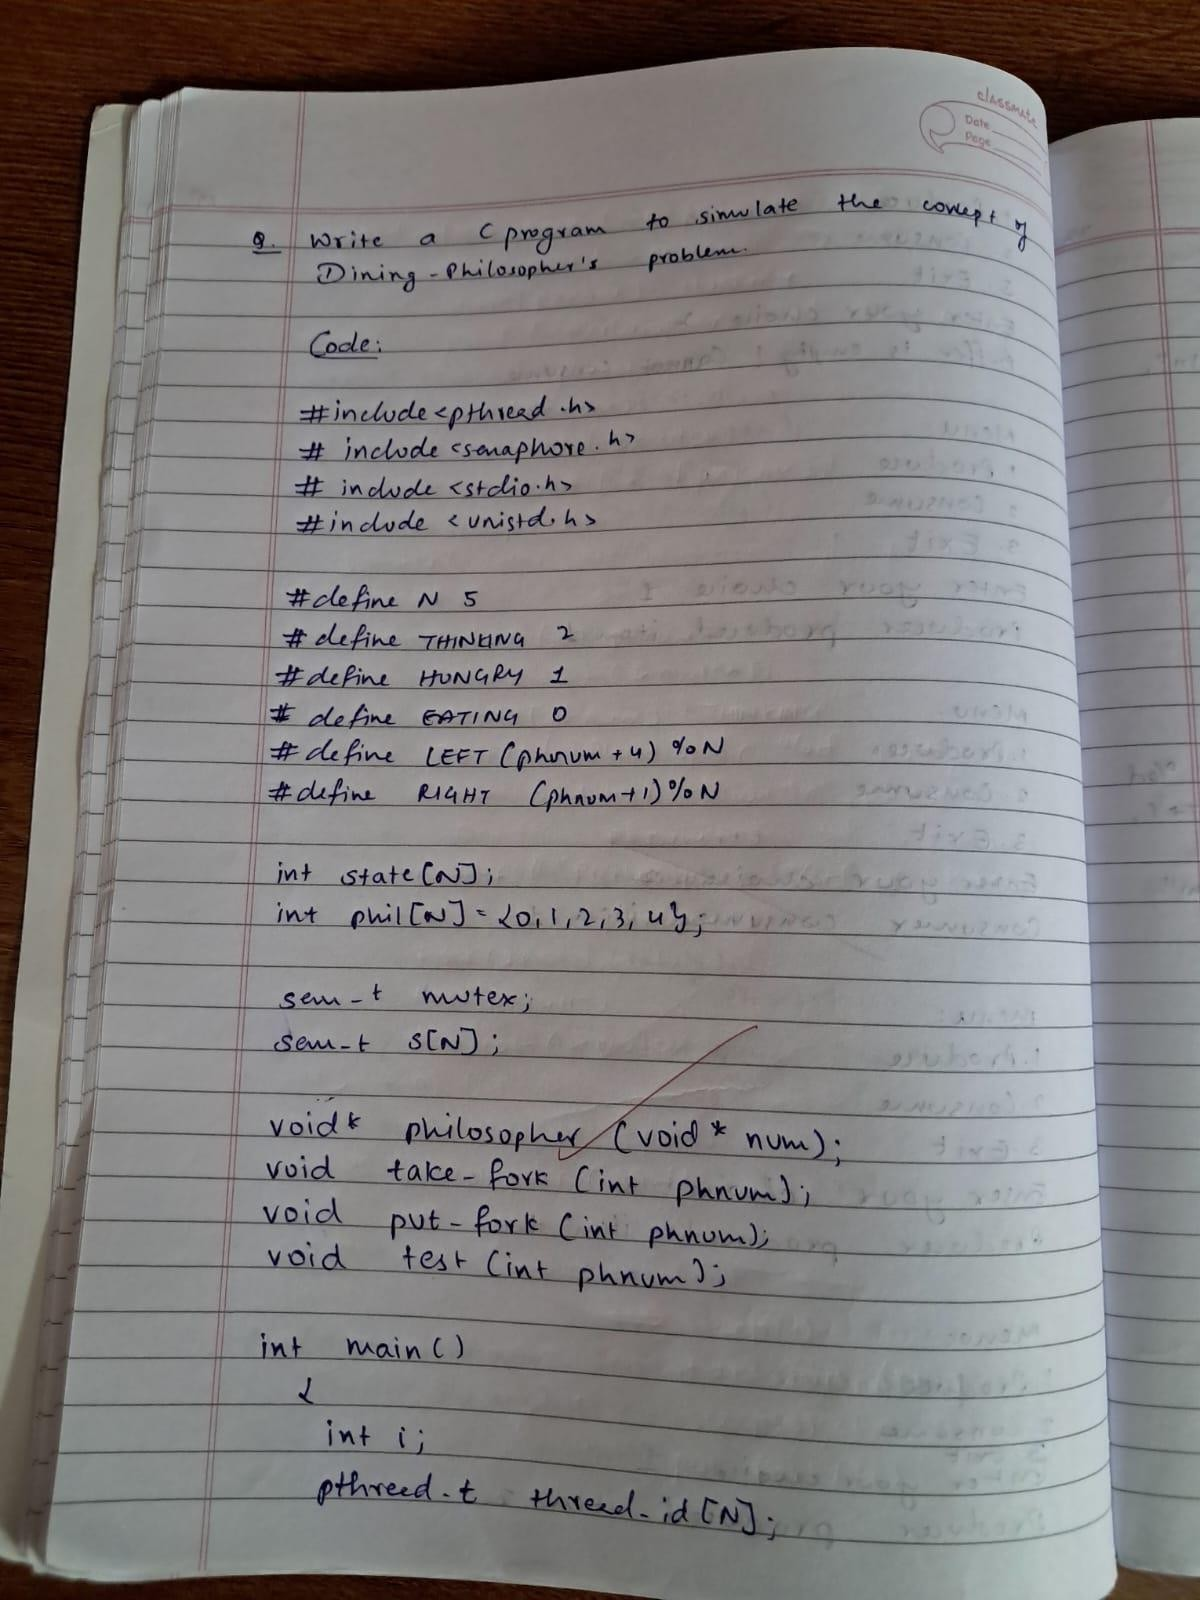 classmate
Date
Page
Q. Write a C program to simulate the concept of
Dining-Philosopher's problem.
Code:
#include<pthread.h>
# include <semaphore.h>
# include <stdio.h>
#include <unistd.h>
#define N 5
# define THINKING 2
#define HUNGRY 1
# define EATING 0
# define LEFT (phnum + 4) %N
#define RIGHT (phnum+1)%N
int state[N];
int phil[N] = {0,1,2,3,4};
sem_t mutex;
sem_t S[N];
void* philosopher (void* num);
void take_fork (int phnum);
void put_fork (int phnum);
void test (int phnum);
int main()
{
int i;
pthread_t thread_id[N];